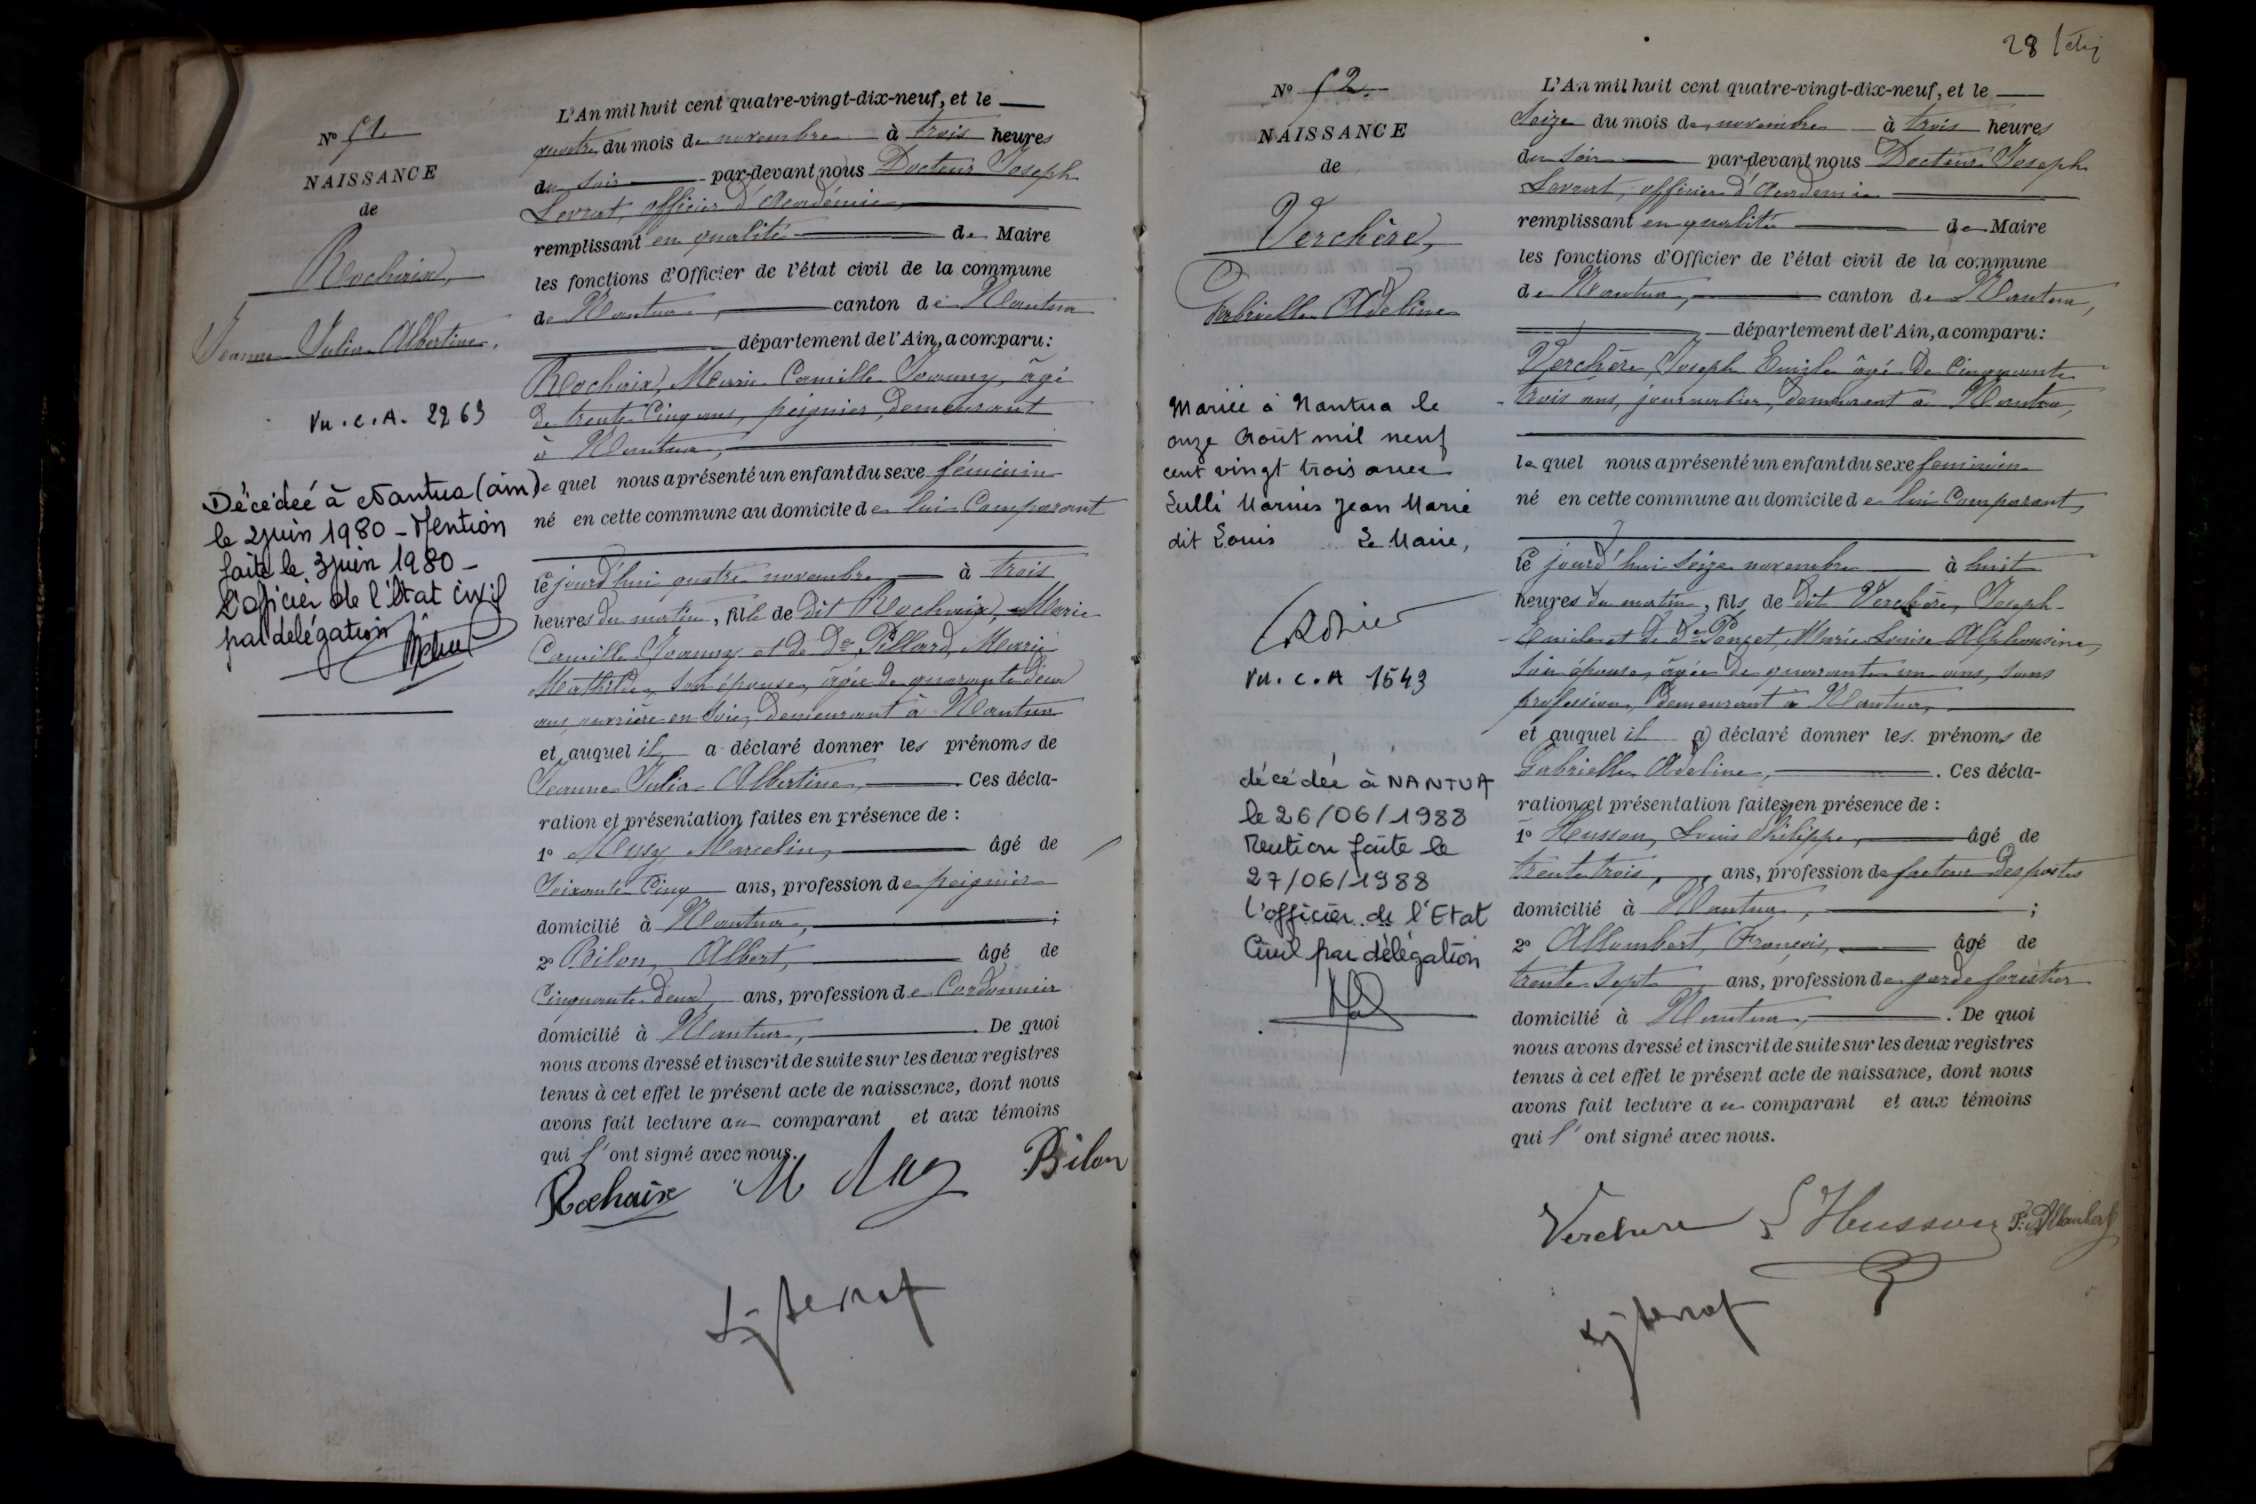 Nº 51
NAISSANCE
de
Rochaix,
Jeanne Julia Albertine.
Vu. C. A. 2263
Décédée à Nantua (ain)
le 2 juin 1980 - Mention
faite le 3 juin 1980 -
L'officier de l'Etat civil
par délégation
L'An mil huit cent quatre-vingt-dix-neuf, et le
quatre du mois de novembre à trois heures
du soir par-devant nous Docteur Joseph
Levrat, officier d'Académie,
remplissant en qualité de Maire
les fonctions d'Officier de l'état civil de la commune
de Nantua, canton de Nantua
département de l'Ain, a comparu:
Rochaix, Marie Camille Joanny, âgé
de trente cinq ans, peignier, demeurant
à Nantua,
le quel nous a présenté un enfant du sexe féminin
né en cette commune au domicile de lui Comparant
ce jourd'hui quatre novembre à trois
heures du matin, fille de dit Rochaix, Marie
Camille Joanny et de De Pillard, Marie
Mathilde, son épouse, âgée de quarante deux
ans, ouvrière en soie, demeurant à Nantua
et auquel il a déclaré donner les prénoms de
Jeanne Julia Albertine, Ces décla-
ration et présentation faites en présence de :
1º Marcelin, âgé de
soixante cinq ans, profession de peignier
domicilié à Nantua, ;
2º Bilon, Albert, âgé de
cinquante deux ans, profession de Cordonnier
domicilié à Nantua, . De quoi
nous avons dressé et inscrit de suite sur les deux registres
tenus à cet effet le présent acte de naissance, dont nous
avons fait lecture au comparant et aux témoins
qui l'ont signé avec nous.
Rochaix Bilon
28
Nº 52
NAISSANCE
de
Verchère,
Gabrielle Adeline
Mariée à Nantua le
onze Août mil neuf
cent vingt trois avec
Lulli Marius Jean Marie
dit Louis Le Maire,
Vu. C. A 1543
décédée à NANTUA
le 26/06/1988
Mention faite le
27/06/1988
l'officier de l'Etat
Civil par délégation
L'An mil huit cent quatre-vingt-dix-neuf, et le
Seize du mois de novembre à trois heures
du soir par-devant nous Docteur Joseph
Levrat, officier d'Académie
remplissant en qualité de Maire
les fonctions d'Officier de l'état civil de la commune
de Nantua, canton de Nantua,
département de l'Ain, a comparu:
Verchère, Joseph Emile âgé de Cinquante
trois ans, journalier, demeurant à Nantua,
le quel nous a présenté un enfant du sexe feminin
né en cette commune au domicile de lui Comparant,
ce jourd'hui Seize novembre à huit
heures du matin, fils de dit Verchère, Joseph
Emile et de De Poncet, Marie Louise Alphonsine,
son épouse, âgée de quarante un ans, sans
profession, demeurant à Nantua,
et auquel il a déclaré donner les prénoms de
Gabrielle Adeline, . Ces décla-
ration et présentation faites en présence de :
1º Husson, Louis Philippe, âgé de
trente trois, ans, profession de facteur des postes
domicilié à Nantua, ;
2º Allombert, François, âgé de
trente sept ans, profession de garde forestier
domicilié à Nantua, . De quoi
nous avons dressé et inscrit de suite sur les deux registres
tenus à cet effet le présent acte de naissance, dont nous
avons fait lecture au comparant et aux témoins
qui l'ont signé avec nous.
Verchere L Husson F. Allombert